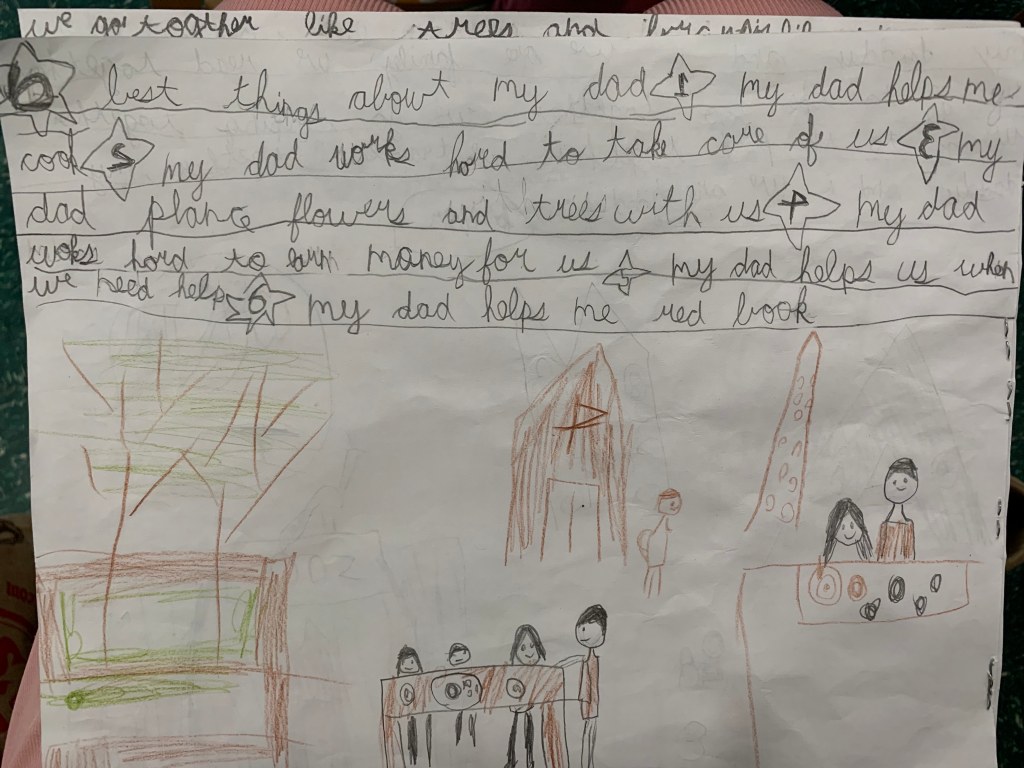 we go together like trees and
6 best things about my dad 1 my dad helps me
cook 2 my dad works hard to take care of us 3 my
dad plane flowers and trees with us 4 my dad
woks hard to earn money for us 5 my dad helps us when
we need help 6 my dad helps me red book